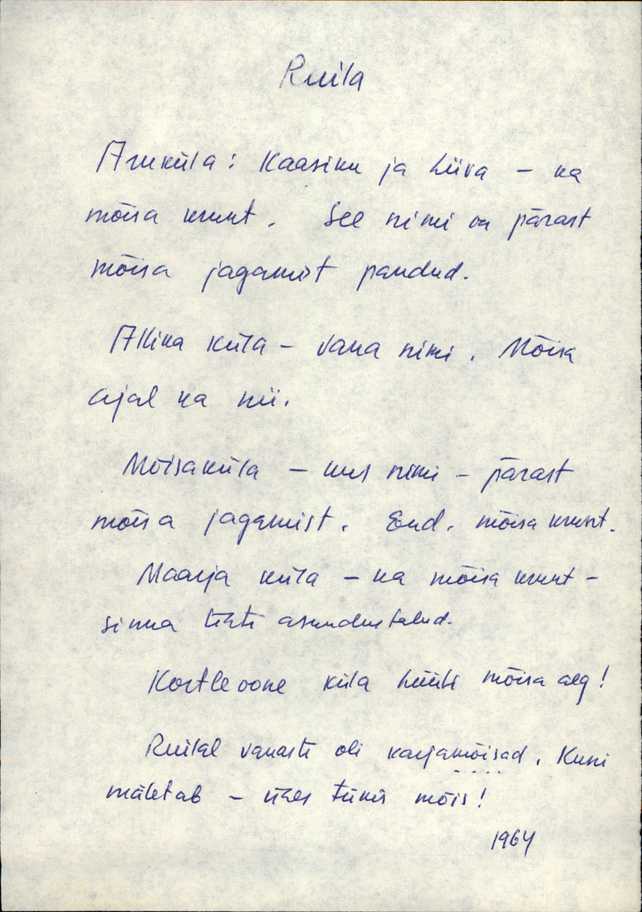 Ruila
Aruküla: Kaasiku ja Liiva – ka
mõisa krunt. See nimi on pärast
mõisa jagamist pandud.
Allika küla – vana nimi. Mõisa
ajal ka nii.
Mõisaküla – uus nimi – pärast
mõisa jagamist. End. mõisa krunt.
Maarja küla – ka mõisa krunt –
sinna tehti asundustalud.
küla hüüti mõisa aeg!
Ruilal vanasti oli karjamõisad. Kuni
mäletab – ühes tükis mõis!
1964